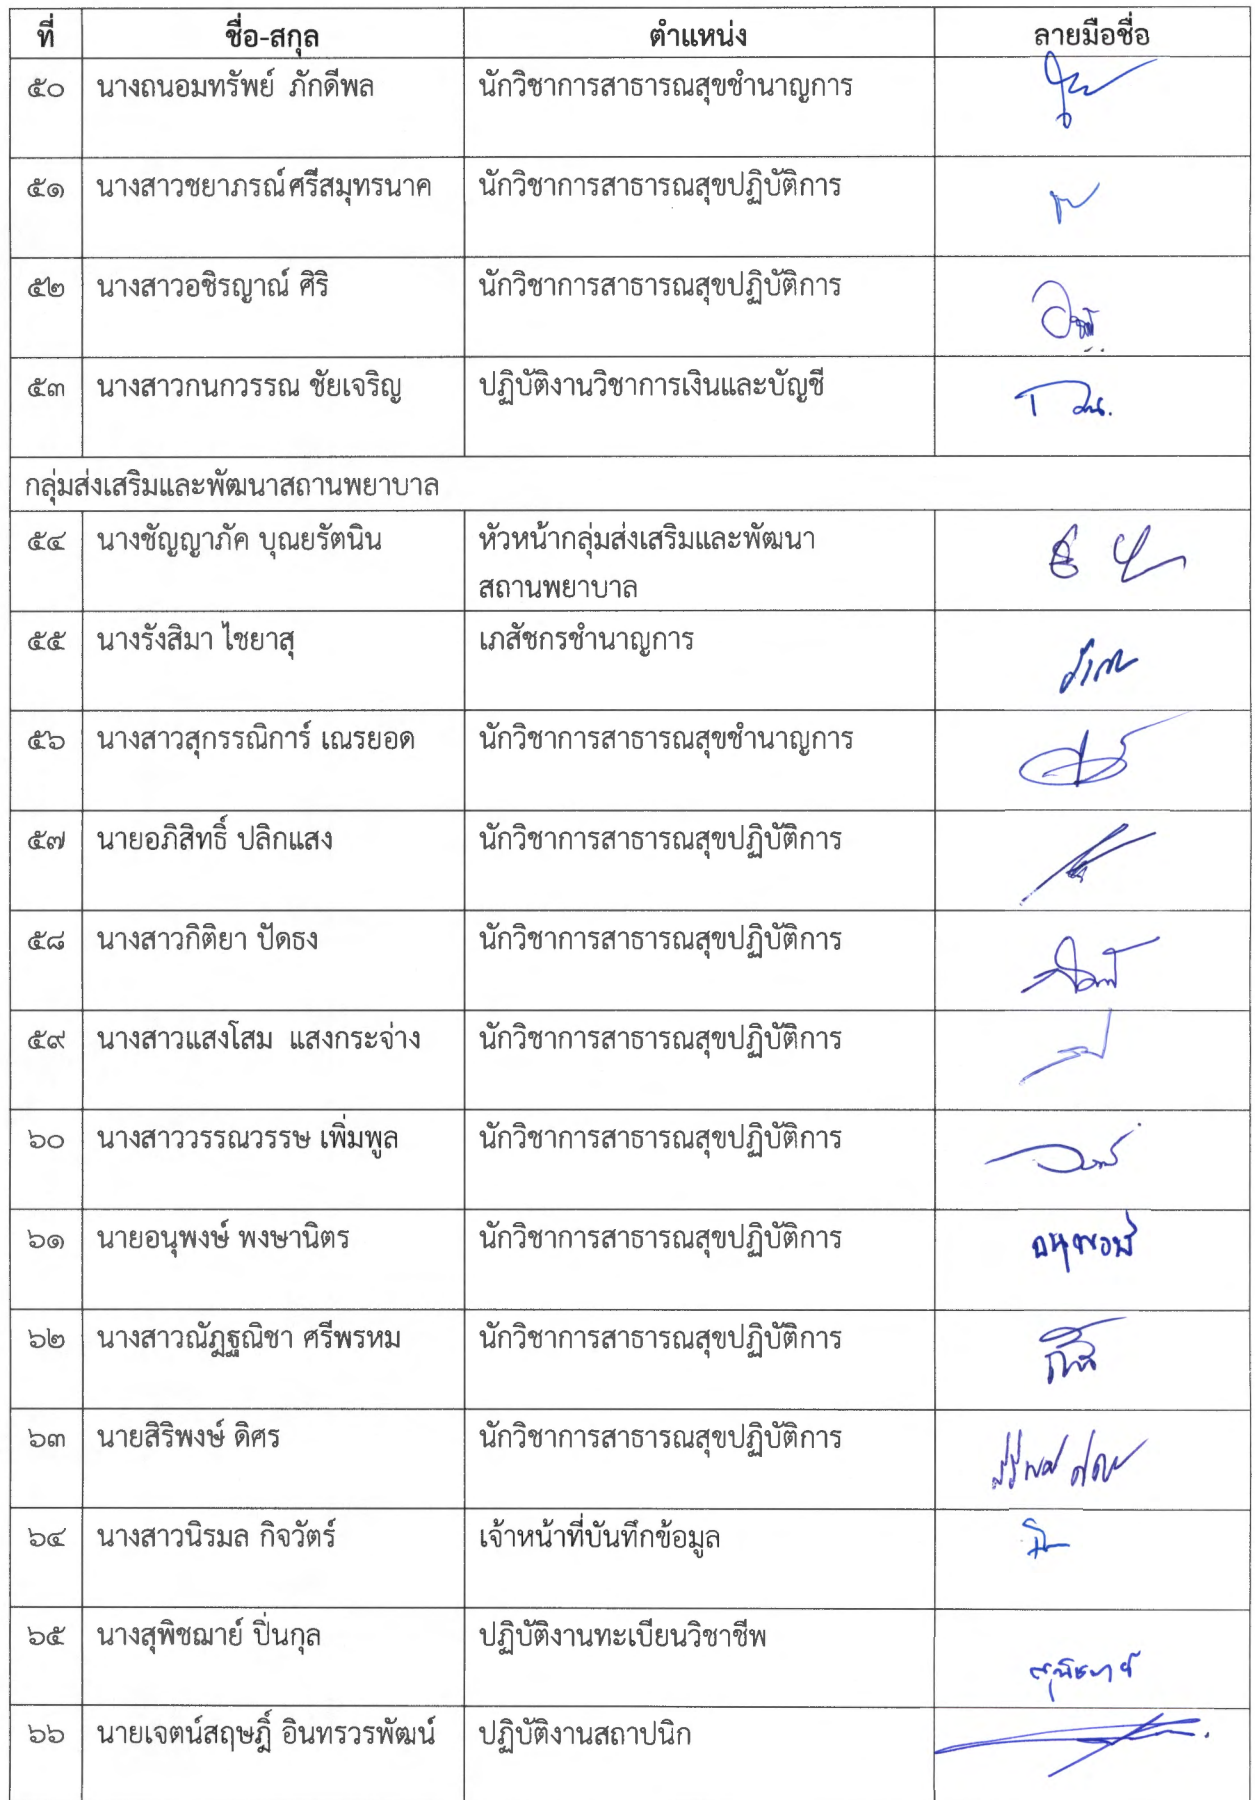 ที่ ชื่อ-สกุล ตำแหน่ง ลายมือชื่อ
๕๐ นางถนอมทรัพย์ ภักดีพล นักวิชาการสาธารณสุขชำนาญการ
๕๑ นางสาวชยาภรณ์ศรีสมุทรนาค นักวิชาการสาธารณสุขปฏิบัติการ
๕๒ นางสาวอชิรญาณ์ ศิริ นักวิชาการสาธารณสุขปฏิบัติการ
๕๓ นางสาวกนกวรรณ ชัยเจริญ ปฏิบัติงานวิชาการเงินและบัญชี
กลุ่มส่งเสริมและพัฒนาสถานพยาบาล
๕๔ นางชัญญาภัค บุณยรัตนิน หัวหน้ากลุ่มส่งเสริมและพัฒนา
สถานพยาบาล
๕๕ นางรังสิมา ไชยาสุ เภสัชกรชำนาญการ
๕๖ นางสาวสุกรรณิการ์ เณรยอด นักวิชาการสาธารณสุขชำนาญการ
๕๗ นายอภิสิทธิ์ ปลิกแสง นักวิชาการสาธารณสุขปฏิบัติการ
๕๘ นางสาวกิติยา ปัดธง นักวิชาการสาธารณสุขปฏิบัติการ
๕๙ นางสาวแสงโสม แสงกระจ่าง นักวิชาการสาธารณสุขปฏิบัติการ
๖๐ นางสาววรรณวรรษ เพิ่มพูล นักวิชาการสาธารณสุขปฏิบัติการ
๖๑ นายอนุพงษ์ พงษานิตร นักวิชาการสาธารณสุขปฏิบัติการ อนุพงษ์
๖๒ นางสาวณัฏฐณิชา ศรีพรหม นักวิชาการสาธารณสุขปฏิบัติการ
๖๓ นายสิริพงษ์ ดิศร นักวิชาการสาธารณสุขปฏิบัติการ
๖๔ นางสาวนิรมล กิจวัตร์ เจ้าหน้าที่บันทึกข้อมูล
๖๕ นางสุพิชฌาย์ ปิ่นกุล ปฏิบัติงานทะเบียนวิชาชีพ สุพิชฌาย์
๖๖ นายเจตน์สฤษฎิ์ อินทรวรพัฒน์ ปฏิบัติงานสถาปนิก